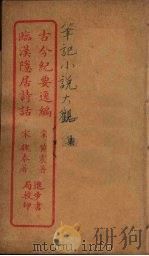 筆記小說大觀
古今紀要逸編
宋黃震著
臨漢隱居詩話
宋魏泰著
進步書局校印